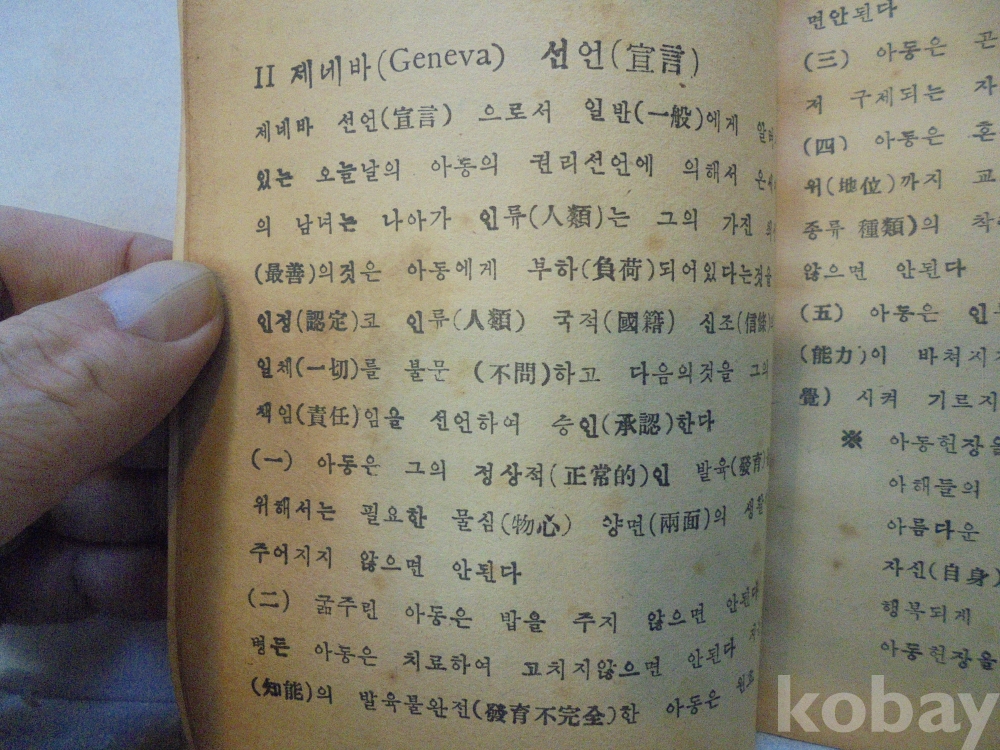 II 제네바(Geneva) 선언(宣言)
제네바 선언(宣言) 으로서 일반(一般)에게
있는 오늘날의 아동의 권리선언에 의해서
의 남녀는 나아가 인류(人類)는 그의 가진
(最善)의것은 아동에게 부하(負荷)되어있다는것을
인정(認定)코 인류(人類) 국적(國籍) 신조(信條)
일체(一切)를 불문 (不問)하고 다음의것을 그의
책임(責任)임을 선언하여 승인(承認)한다
(一) 아동은 그의 정상적(正常的)인 발육(發育)
위해서는 필요한 물심(物心) 양면(兩面)의 생활
주어지지 않으면 안된다
(二) 굶주린 아동은 밥을 주지 않으면 안된다
병든 아동은 치료하여 고치지않으면 안된다
(知能)의 발육불완전(發育不完全)한 아동은
면안된다
(三) 아동은 곤
저 구제되는 자
(四) 아동은 혼
위(地位)까지 교
종류 種類)의 착
않으면 안된다
(五) 아동은 인
(能力)이 바쳐시
覺) 시켜 기르지
※ 아동헌장을
아해들의
아름다운
자신(自身)
행복되게
아동헌장을
kobay